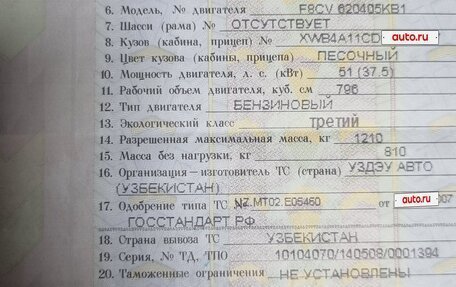 6. Модель, № двигателя F8CV 620405KB1
7. Шасси (рама) № ОТСУТСТВУЕТ
8. Кузов (кабина, прицеп) № XWB4A11CD auto.ru
9. Цвет кузова (кабины, прицепа) ПЕСОЧНЫЙ
10. Мощность двигателя, л. с. (кВт) 51 (37.5)
11. Рабочий объем двигателя, куб. см 796
12. Тип двигателя БЕНЗИНОВЫЙ
13. Экологический класс третий
14. Разрешенная максимальная масса, кг 1210
15. Масса без нагрузки, кг 810
16. Организация-изготовитель ТС (страна) УЗДЭУ АВТО
(УЗБЕКИСТАН)
17. Одобрение типа ТС № UZ.MT02.E05450 от auto.ru 007
ГОССТАНДАРТ РФ
18. Страна вывоза ТС УЗБЕКИСТАН
19. Серия, № ТД, ТПО 10104070/140508/0001394
20. Таможенные ограничения НЕ УСТАНОВЛЕНЫ